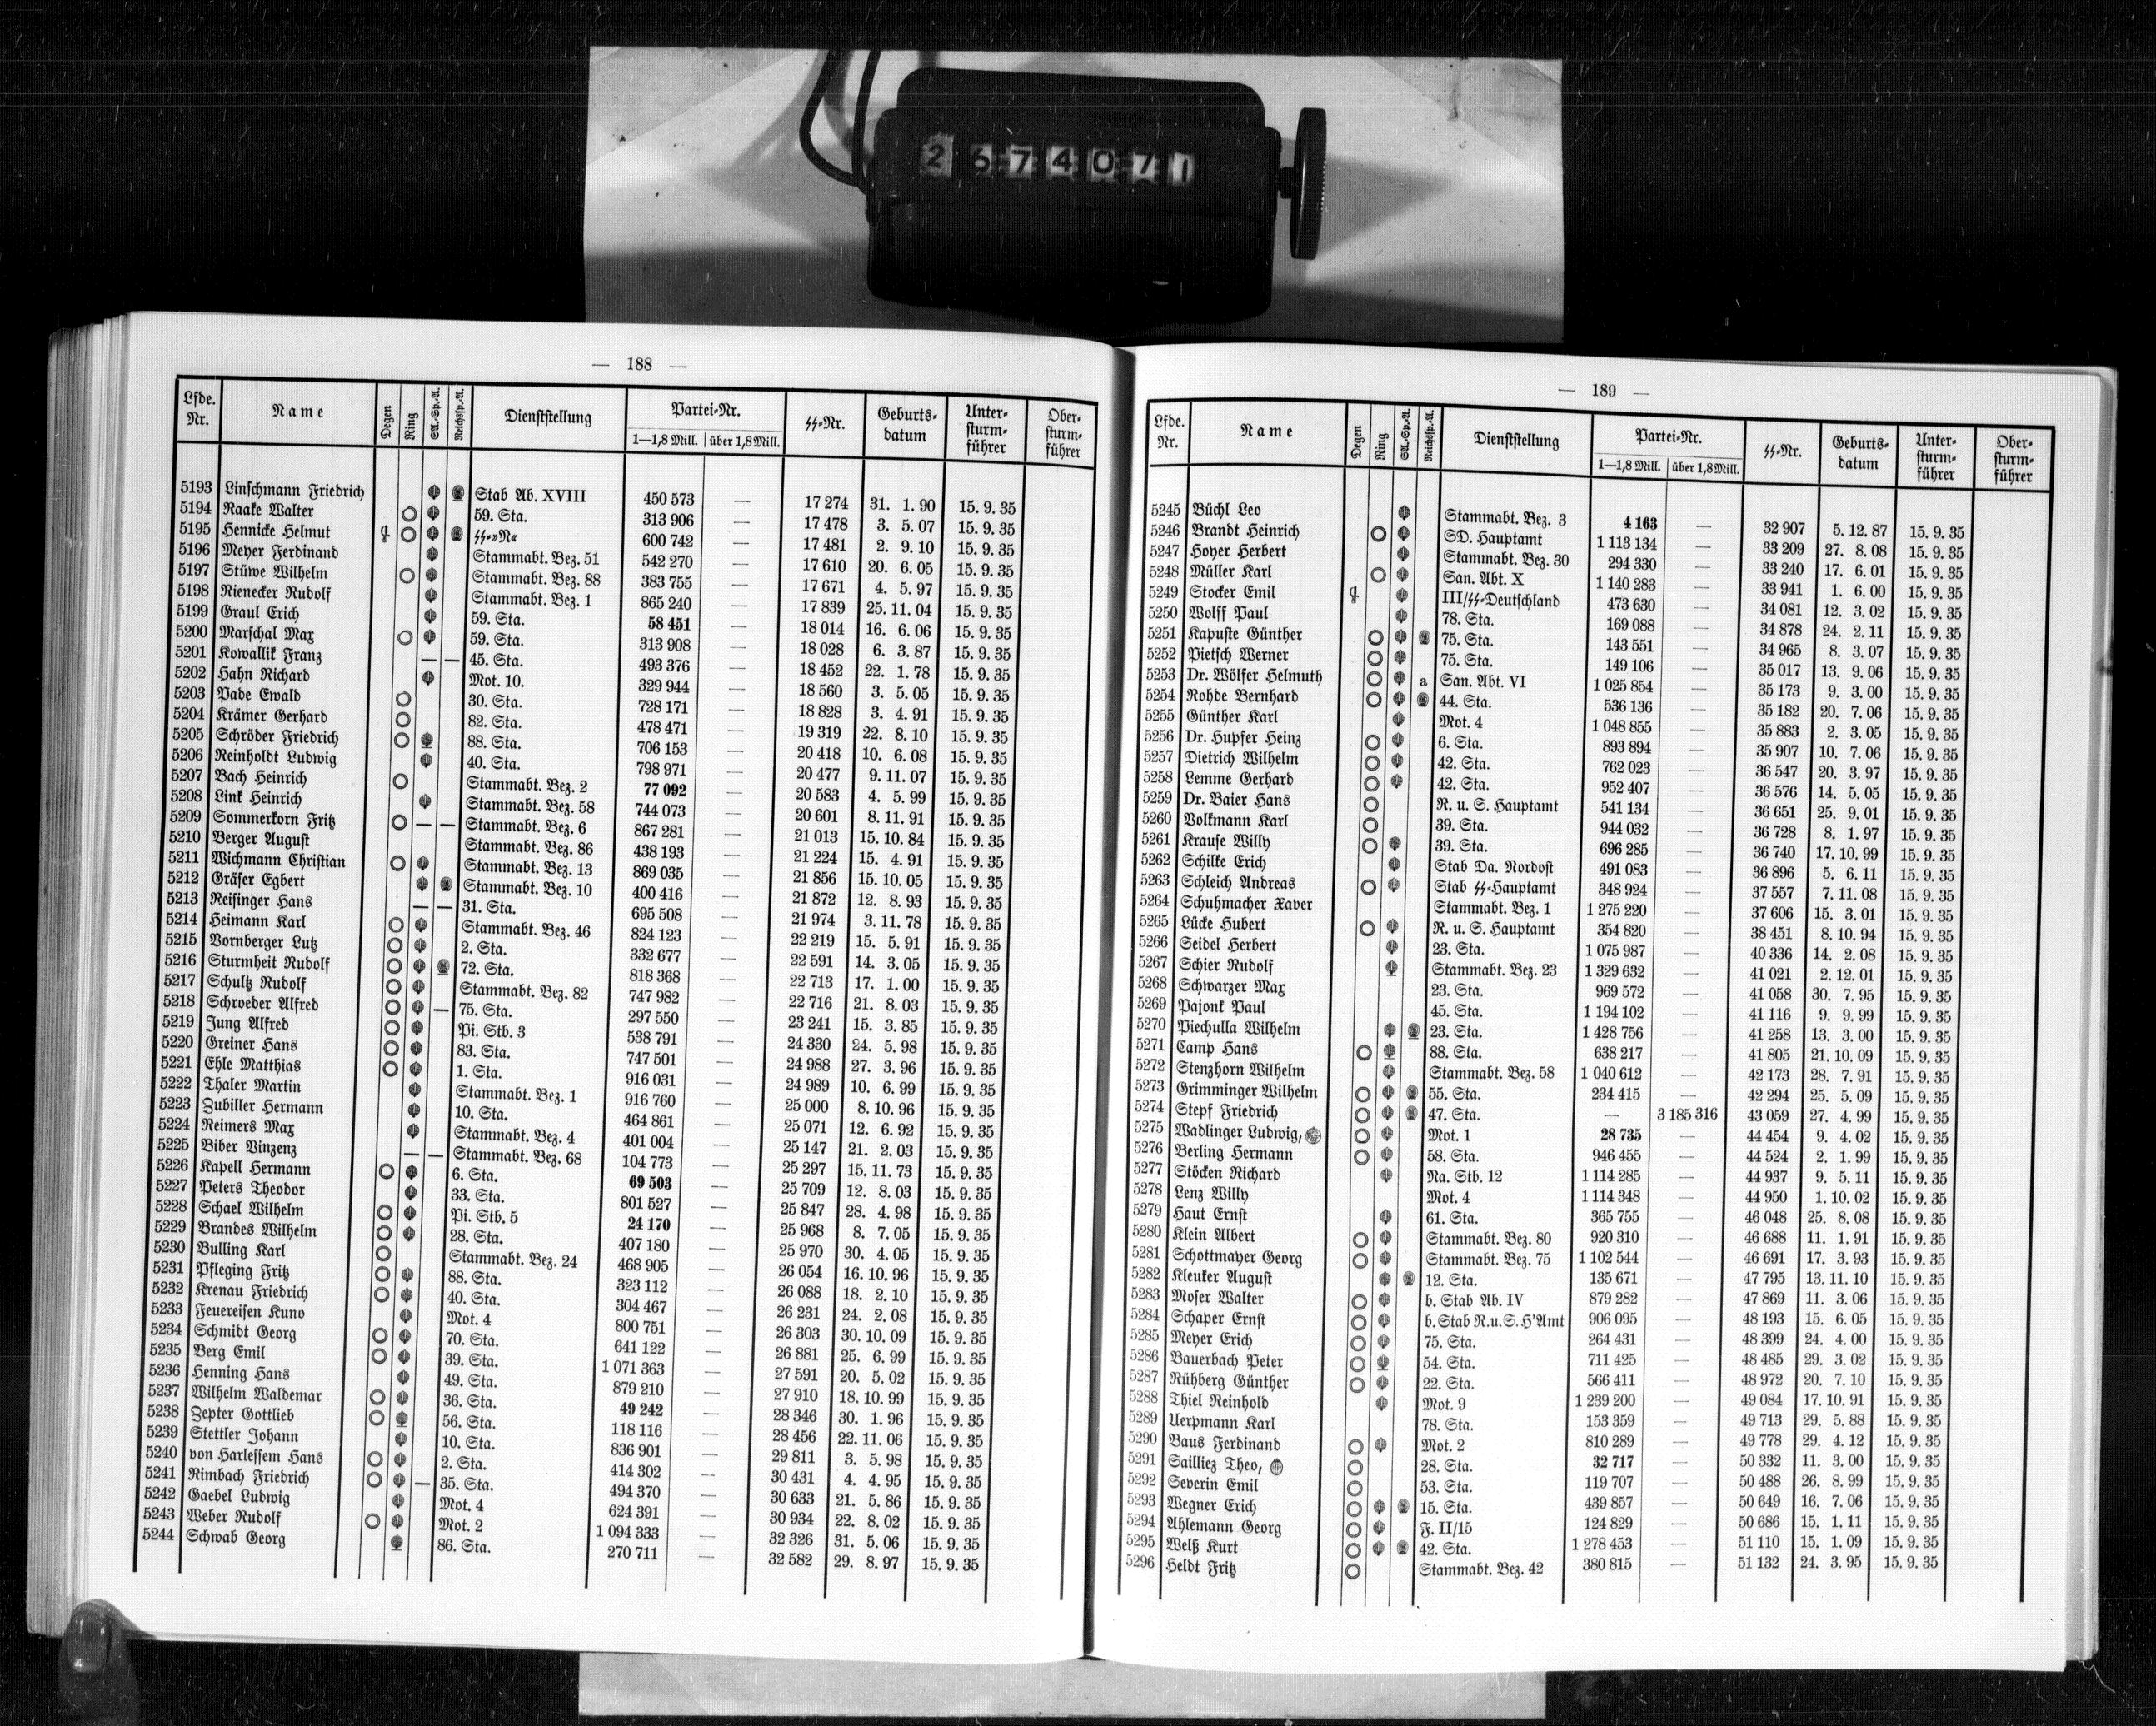 2674071
— 188 —
Lfde. Nr. Name Degen Ring SA.-Sp.-A. Reichsp.-A. Dienststellung Partei-Nr. 1—1,8 Mill. über 1,8 Mill. ᛋᛋ-Nr. Geburts-datum Unter-sturm-führer Ober-sturm-führer
5193 Linschmann Friedrich Stab Ab. XVIII 450 573 — 17 274 31. 1. 90 15. 9. 35
5194 Raake Walter 59. Sta. 313 906 — 17 478 3. 5. 07 15. 9. 35
5195 Hennicke Helmut ᛋᛋ-»N« 600 742 — 17 481 2. 9. 10 15. 9. 35
5196 Meyer Ferdinand Stammabt. Bez. 51 542 270 — 17 610 20. 6. 05 15. 9. 35
5197 Stüwe Wilhelm Stammabt. Bez. 88 383 755 — 17 671 4. 5. 97 15. 9. 35
5198 Rienecker Rudolf Stammabt. Bez. 1 865 240 — 17 839 25. 11. 04 15. 9. 35
5199 Graul Erich 59. Sta. 58 451 — 18 014 16. 6. 06 15. 9. 35
5200 Marschal Max 59. Sta. 313 908 — 18 028 6. 3. 87 15. 9. 35
5201 Kowallik Franz — — 45. Sta. 493 376 — 18 452 22. 1. 78 15. 9. 35
5202 Hahn Richard Mot. 10. 329 944 — 18 560 3. 5. 05 15. 9. 35
5203 Pade Ewald 30. Sta. 728 171 — 18 828 3. 4. 91 15. 9. 35
5204 Krämer Gerhard 82. Sta. 478 471 — 19 319 22. 8. 10 15. 9. 35
5205 Schröder Friedrich 88. Sta. 706 153 — 20 418 10. 6. 08 15. 9. 35
5206 Reinholdt Ludwig 40. Sta. 798 971 — 20 477 9. 11. 07 15. 9. 35
5207 Bach Heinrich Stammabt. Bez. 2 77 092 — 20 583 4. 5. 99 15. 9. 35
5208 Link Heinrich Stammabt. Bez. 58 744 073 — 20 601 8. 11. 91 15. 9. 35
5209 Sommerkorn Fritz — — Stammabt. Bez. 6 867 281 — 21 013 15. 10. 84 15. 9. 35
5210 Berger August Stammabt. Bez. 86 438 193 — 21 224 15. 4. 91 15. 9. 35
5211 Wichmann Christian Stammabt. Bez. 13 869 035 — 21 856 15. 10. 05 15. 9. 35
5212 Gräser Egbert Stammabt. Bez. 10 400 416 — 21 872 12. 8. 93 15. 9. 35
5213 Reisinger Hans — — 31. Sta. 695 508 — 21 974 3. 11. 78 15. 9. 35
5214 Heimann Karl Stammabt. Bez. 46 824 123 — 22 219 15. 5. 91 15. 9. 35
5215 Vornberger Lutz 2. Sta. 332 677 — 22 591 14. 3. 05 15. 9. 35
5216 Sturmheit Rudolf 72. Sta. 818 368 — 22 713 17. 1. 00 15. 9. 35
5217 Schultz Rudolf Stammabt. Bez. 82 747 982 — 22 716 21. 8. 03 15. 9. 35
5218 Schroeder Alfred — 75. Sta. 297 550 — 23 241 15. 3. 85 15. 9. 35
5219 Jung Alfred Pi. Stb. 3 538 791 — 24 330 24. 5. 98 15. 9. 35
5220 Greiner Hans 83. Sta. 747 501 — 24 988 27. 3. 96 15. 9. 35
5221 Ehle Matthias 1. Sta. 916 031 — 24 989 10. 6. 99 15. 9. 35
5222 Thaler Martin Stammabt. Bez. 1 916 760 — 25 000 8. 10. 96 15. 9. 35
5223 Zubiller Hermann 10. Sta. 464 861 — 25 071 12. 6. 92 15. 9. 35
5224 Reimers Max Stammabt. Bez. 4 401 004 — 25 147 21. 2. 03 15. 9. 35
5225 Biber Vinzenz — — Stammabt. Bez. 68 104 773 — 25 297 15. 11. 73 15. 9. 35
5226 Kapell Hermann 6. Sta. 69 503 — 25 709 12. 8. 03 15. 9. 35
5227 Peters Theodor 33. Sta. 801 527 — 25 847 28. 4. 98 15. 9. 35
5228 Schael Wilhelm Pi. Stb. 5 24 170 — 25 968 8. 7. 05 15. 9. 35
5229 Brandes Wilhelm 28. Sta. 407 180 — 25 970 30. 4. 05 15. 9. 35
5230 Bulling Karl Stammabt. Bez. 24 468 905 — 26 054 16. 10. 96 15. 9. 35
5231 Pfleging Fritz 88. Sta. 323 112 — 26 088 18. 2. 10 15. 9. 35
5232 Krenau Friedrich 40. Sta. 304 467 — 26 231 24. 2. 08 15. 9. 35
5233 Feuereisen Kuno Mot. 4 800 751 — 26 303 30. 10. 09 15. 9. 35
5234 Schmidt Georg 70. Sta. 641 122 — 26 881 25. 6. 99 15. 9. 35
5235 Berg Emil 39. Sta. 1 071 363 — 27 591 20. 5. 02 15. 9. 35
5236 Henning Hans 49. Sta. 879 210 — 27 910 18. 10. 99 15. 9. 35
5237 Wilhelm Waldemar 36. Sta. 49 242 — 28 346 30. 1. 96 15. 9. 35
5238 Zepter Gottlieb 56. Sta. 118 116 — 28 456 22. 11. 06 15. 9. 35
5239 Stettler Johann 10. Sta. 836 901 — 29 811 3. 5. 98 15. 9. 35
5240 von Harlessem Hans 2. Sta. 414 302 — 30 431 4. 4. 95 15. 9. 35
5241 Rimbach Friedrich — 35. Sta. 494 370 — 30 633 21. 5. 86 15. 9. 35
5242 Gaebel Ludwig Mot. 4 624 391 — 30 934 22. 8. 02 15. 9. 35
5243 Weber Rudolf Mot. 2 1 094 333 — 32 326 31. 5. 06 15. 9. 35
5244 Schwab Georg 86. Sta. 270 711 — 32 582 29. 8. 97 15. 9. 35
— 189 —
Lfde. Nr. Name Degen Ring SA.-Sp.-A. Reichsp.-A. Dienststellung Partei-Nr. 1—1,8 Mill. über 1,8 Mill. ᛋᛋ-Nr. Geburts-datum Unter-sturm-führer Ober-sturm-führer
5245 Büchl Leo Stammabt. Bez. 3 4 163 — 32 907 5. 12. 87 15. 9. 35
5246 Brandt Heinrich SD. Hauptamt 1 113 134 — 33 209 27. 8. 08 15. 9. 35
5247 Hoyer Herbert Stammabt. Bez. 30 294 330 — 33 240 17. 6. 01 15. 9. 35
5248 Müller Karl San. Abt. X 1 140 283 — 33 941 1. 6. 00 15. 9. 35
5249 Stocker Emil III/ᛋᛋ-Deutschland 473 630 — 34 081 12. 3. 02 15. 9. 35
5250 Wolff Paul 78. Sta. 169 088 — 34 878 24. 2. 11 15. 9. 35
5251 Kapuste Günther 75. Sta. 143 551 — 34 965 8. 3. 07 15. 9. 35
5252 Pietsch Werner 75. Sta. 149 106 — 35 017 13. 9. 06 15. 9. 35
5253 Dr. Wölfer Helmuth a San. Abt. VI 1 025 854 — 35 173 9. 3. 00 15. 9. 35
5254 Rohde Bernhard 44. Sta. 536 136 — 35 182 20. 7. 06 15. 9. 35
5255 Günther Karl Mot. 4 1 048 855 — 35 883 2. 3. 05 15. 9. 35
5256 Dr. Hupfer Heinz 6. Sta. 893 894 — 35 907 10. 7. 06 15. 9. 35
5257 Dietrich Wilhelm 42. Sta. 762 023 — 36 547 20. 3. 97 15. 9. 35
5258 Lemme Gerhard 42. Sta. 952 407 — 36 576 14. 5. 05 15. 9. 35
5259 Dr. Baier Hans R. u. S. Hauptamt 541 134 — 36 651 25. 9. 01 15. 9. 35
5260 Volkmann Karl 39. Sta. 944 032 — 36 728 8. 1. 97 15. 9. 35
5261 Krause Willy 39. Sta. 696 285 — 36 740 17. 10. 99 15. 9. 35
5262 Schilke Erich Stab Da. Nordost 491 083 — 36 896 5. 6. 11 15. 9. 35
5263 Schleich Andreas Stab ᛋᛋ-Hauptamt 348 924 — 37 557 7. 11. 08 15. 9. 35
5264 Schuhmacher Xaver Stammabt. Bez. 1 1 275 220 — 37 606 15. 3. 01 15. 9. 35
5265 Lücke Hubert R. u. S. Hauptamt 354 820 — 38 451 8. 10. 94 15. 9. 35
5266 Seidel Herbert 23. Sta. 1 075 987 — 40 336 14. 2. 08 15. 9. 35
5267 Schier Rudolf Stammabt. Bez. 23 1 329 632 — 41 021 2. 12. 01 15. 9. 35
5268 Schwarzer Max 23. Sta. 969 572 — 41 058 30. 7. 95 15. 9. 35
5269 Pajonk Paul 45. Sta. 1 194 102 — 41 116 9. 9. 99 15. 9. 35
5270 Piechulla Wilhelm 23. Sta. 1 428 756 — 41 258 13. 3. 00 15. 9. 35
5271 Camp Hans 88. Sta. 638 217 — 41 805 21. 10. 09 15. 9. 35
5272 Stenzhorn Wilhelm Stammabt. Bez. 58 1 040 612 — 42 173 28. 7. 91 15. 9. 35
5273 Grimminger Wilhelm 55. Sta. 234 415 — 42 294 25. 5. 09 15. 9. 35
5274 Stepf Friedrich 47. Sta. — 3 185 316 43 059 27. 4. 99 15. 9. 35
5275 Wadlinger Ludwig, Mot. 1 28 735 — 44 454 9. 4. 02 15. 9. 35
5276 Berling Hermann 58. Sta. 946 455 — 44 524 2. 1. 99 15. 9. 35
5277 Stöcken Richard Na. Stb. 12 1 114 285 — 44 937 9. 5. 11 15. 9. 35
5278 Lenz Willy Mot. 4 1 114 348 — 44 950 1. 10. 02 15. 9. 35
5279 Haut Ernst 61. Sta. 365 755 — 46 048 25. 8. 08 15. 9. 35
5280 Klein Albert Stammabt. Bez. 80 920 310 — 46 688 11. 1. 91 15. 9. 35
5281 Schottmayer Georg Stammabt. Bez. 75 1 102 544 — 46 691 17. 3. 93 15. 9. 35
5282 Kleuker August 12. Sta. 135 671 — 47 795 13. 11. 10 15. 9. 35
5283 Moser Walter b. Stab Ab. IV 879 282 — 47 869 11. 3. 06 15. 9. 35
5284 Schaper Ernst b. Stab R.u.S. H'Amt 906 095 — 48 193 15. 6. 05 15. 9. 35
5285 Meyer Erich 75. Sta. 264 431 — 48 399 24. 4. 00 15. 9. 35
5286 Bauerbach Peter 54. Sta. 711 425 — 48 485 29. 3. 02 15. 9. 35
5287 Rühberg Günther 22. Sta. 566 411 — 48 972 20. 7. 10 15. 9. 35
5288 Thiel Reinhold Mot. 9 1 239 200 — 49 084 17. 10. 91 15. 9. 35
5289 Uerpmann Karl 78. Sta. 153 359 — 49 713 29. 5. 88 15. 9. 35
5290 Baus Ferdinand Mot. 2 810 289 — 49 778 29. 4. 12 15. 9. 35
5291 Sailliez Theo, 28. Sta. 32 717 — 50 332 11. 3. 00 15. 9. 35
5292 Severin Emil 53. Sta. 119 707 — 50 488 26. 8. 99 15. 9. 35
5293 Wegner Erich 15. Sta. 439 857 — 50 649 16. 7. 06 15. 9. 35
5294 Ahlemann Georg F. II/15 124 829 — 50 686 15. 1. 11 15. 9. 35
5295 Welß Kurt 42. Sta. 1 278 453 — 51 110 15. 1. 09 15. 9. 35
5296 Heldt Fritz Stammabt. Bez. 42 380 815 — 51 132 24. 3. 95 15. 9. 35